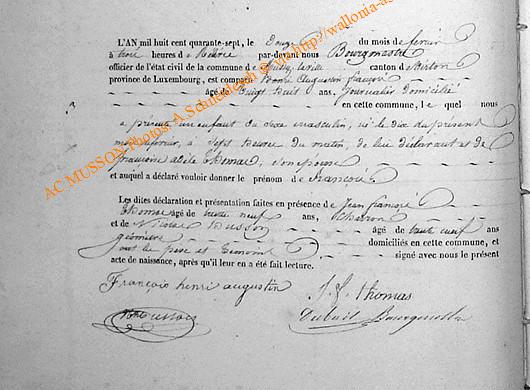 L'AN mil huit cent quarante-sept, le Onze du mois de février
à trois heures de Relevée par-devant nous Bourgmestre
officier de l'état civil de la commune de canton de Virton
province de Luxembourg, est comparu henri Augustin françois
âgé de Vingt huit ans, journalier domicilié
en cette commune, le quel nous
a présenté un enfant du sexe masculin, né le dix du présent
mois février, à Sept heures du matin, de lui déclarant et de
Thomas, son épouse
et auquel a déclaré vouloir donner le prénom de François
Les dites déclaration et présentation faites en présence de Jean françois
Thomas âgé de trente neuf ans, Charron
et de Nicolas Husson âgé de trente neuf ans
domiciliés en cette commune, et
ont le père et témoins signé avec nous le présent
acte de naissance, après qu'il leur en a été fait lecture.
François henri augustin
J. f. thomas
Bourgmestre
AC MUSSON Photos: A. Schneidesch @ wiki http://wallonia-as